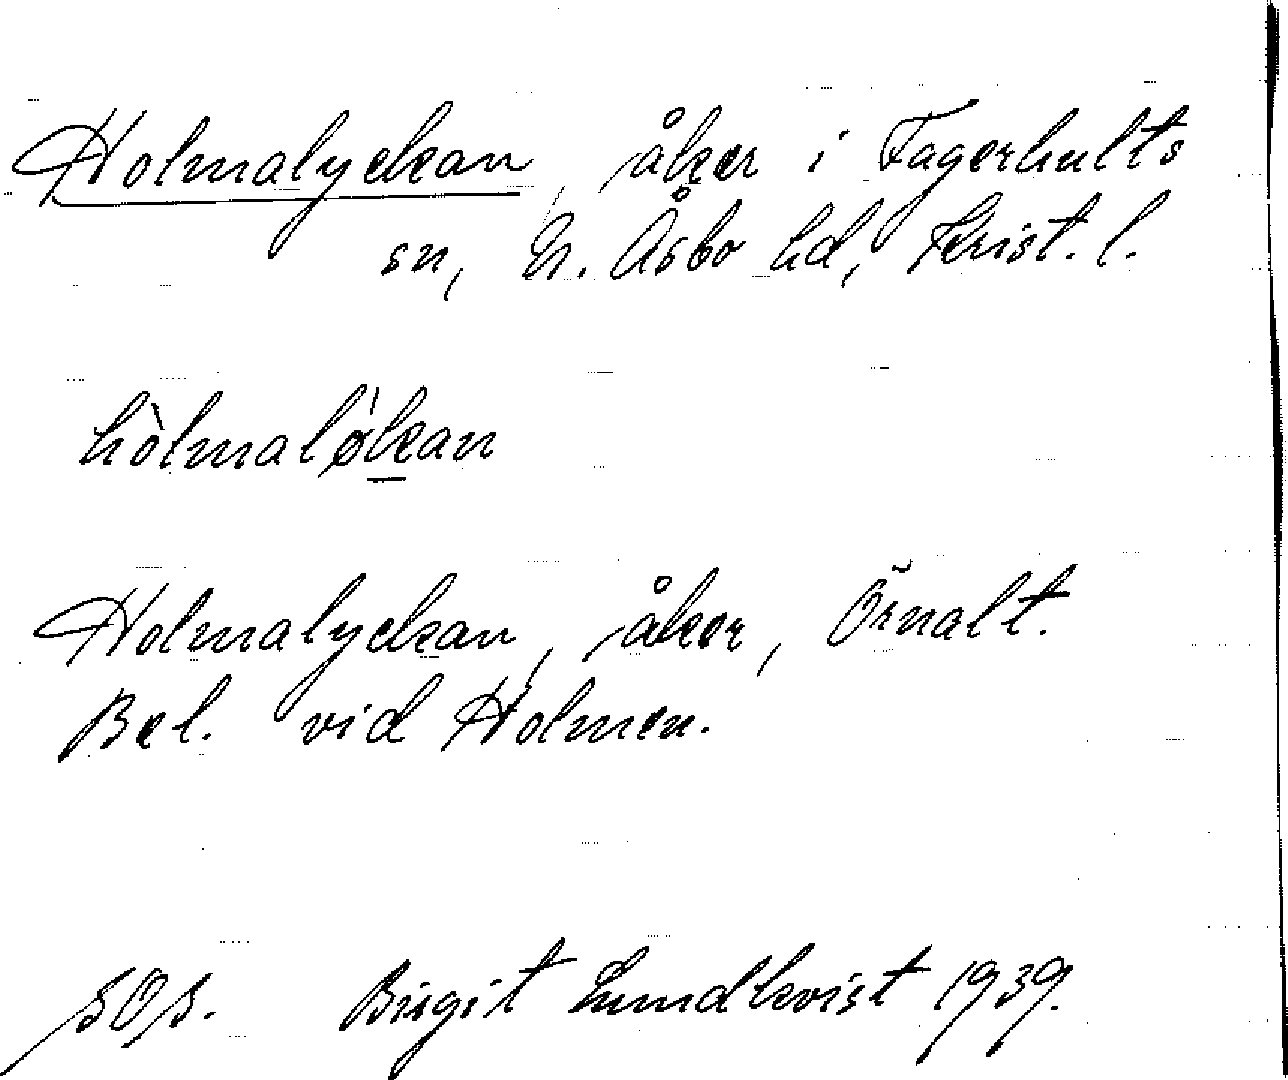 Holmalyckan, åker i Fagerhults
sn, N. Åsbo hd, Krist. l.
hòlmalø̍kan
Holmalyckan, åker, Örnalt.
Bel. vid Holmen.
Birgit Lundkvist 1939.